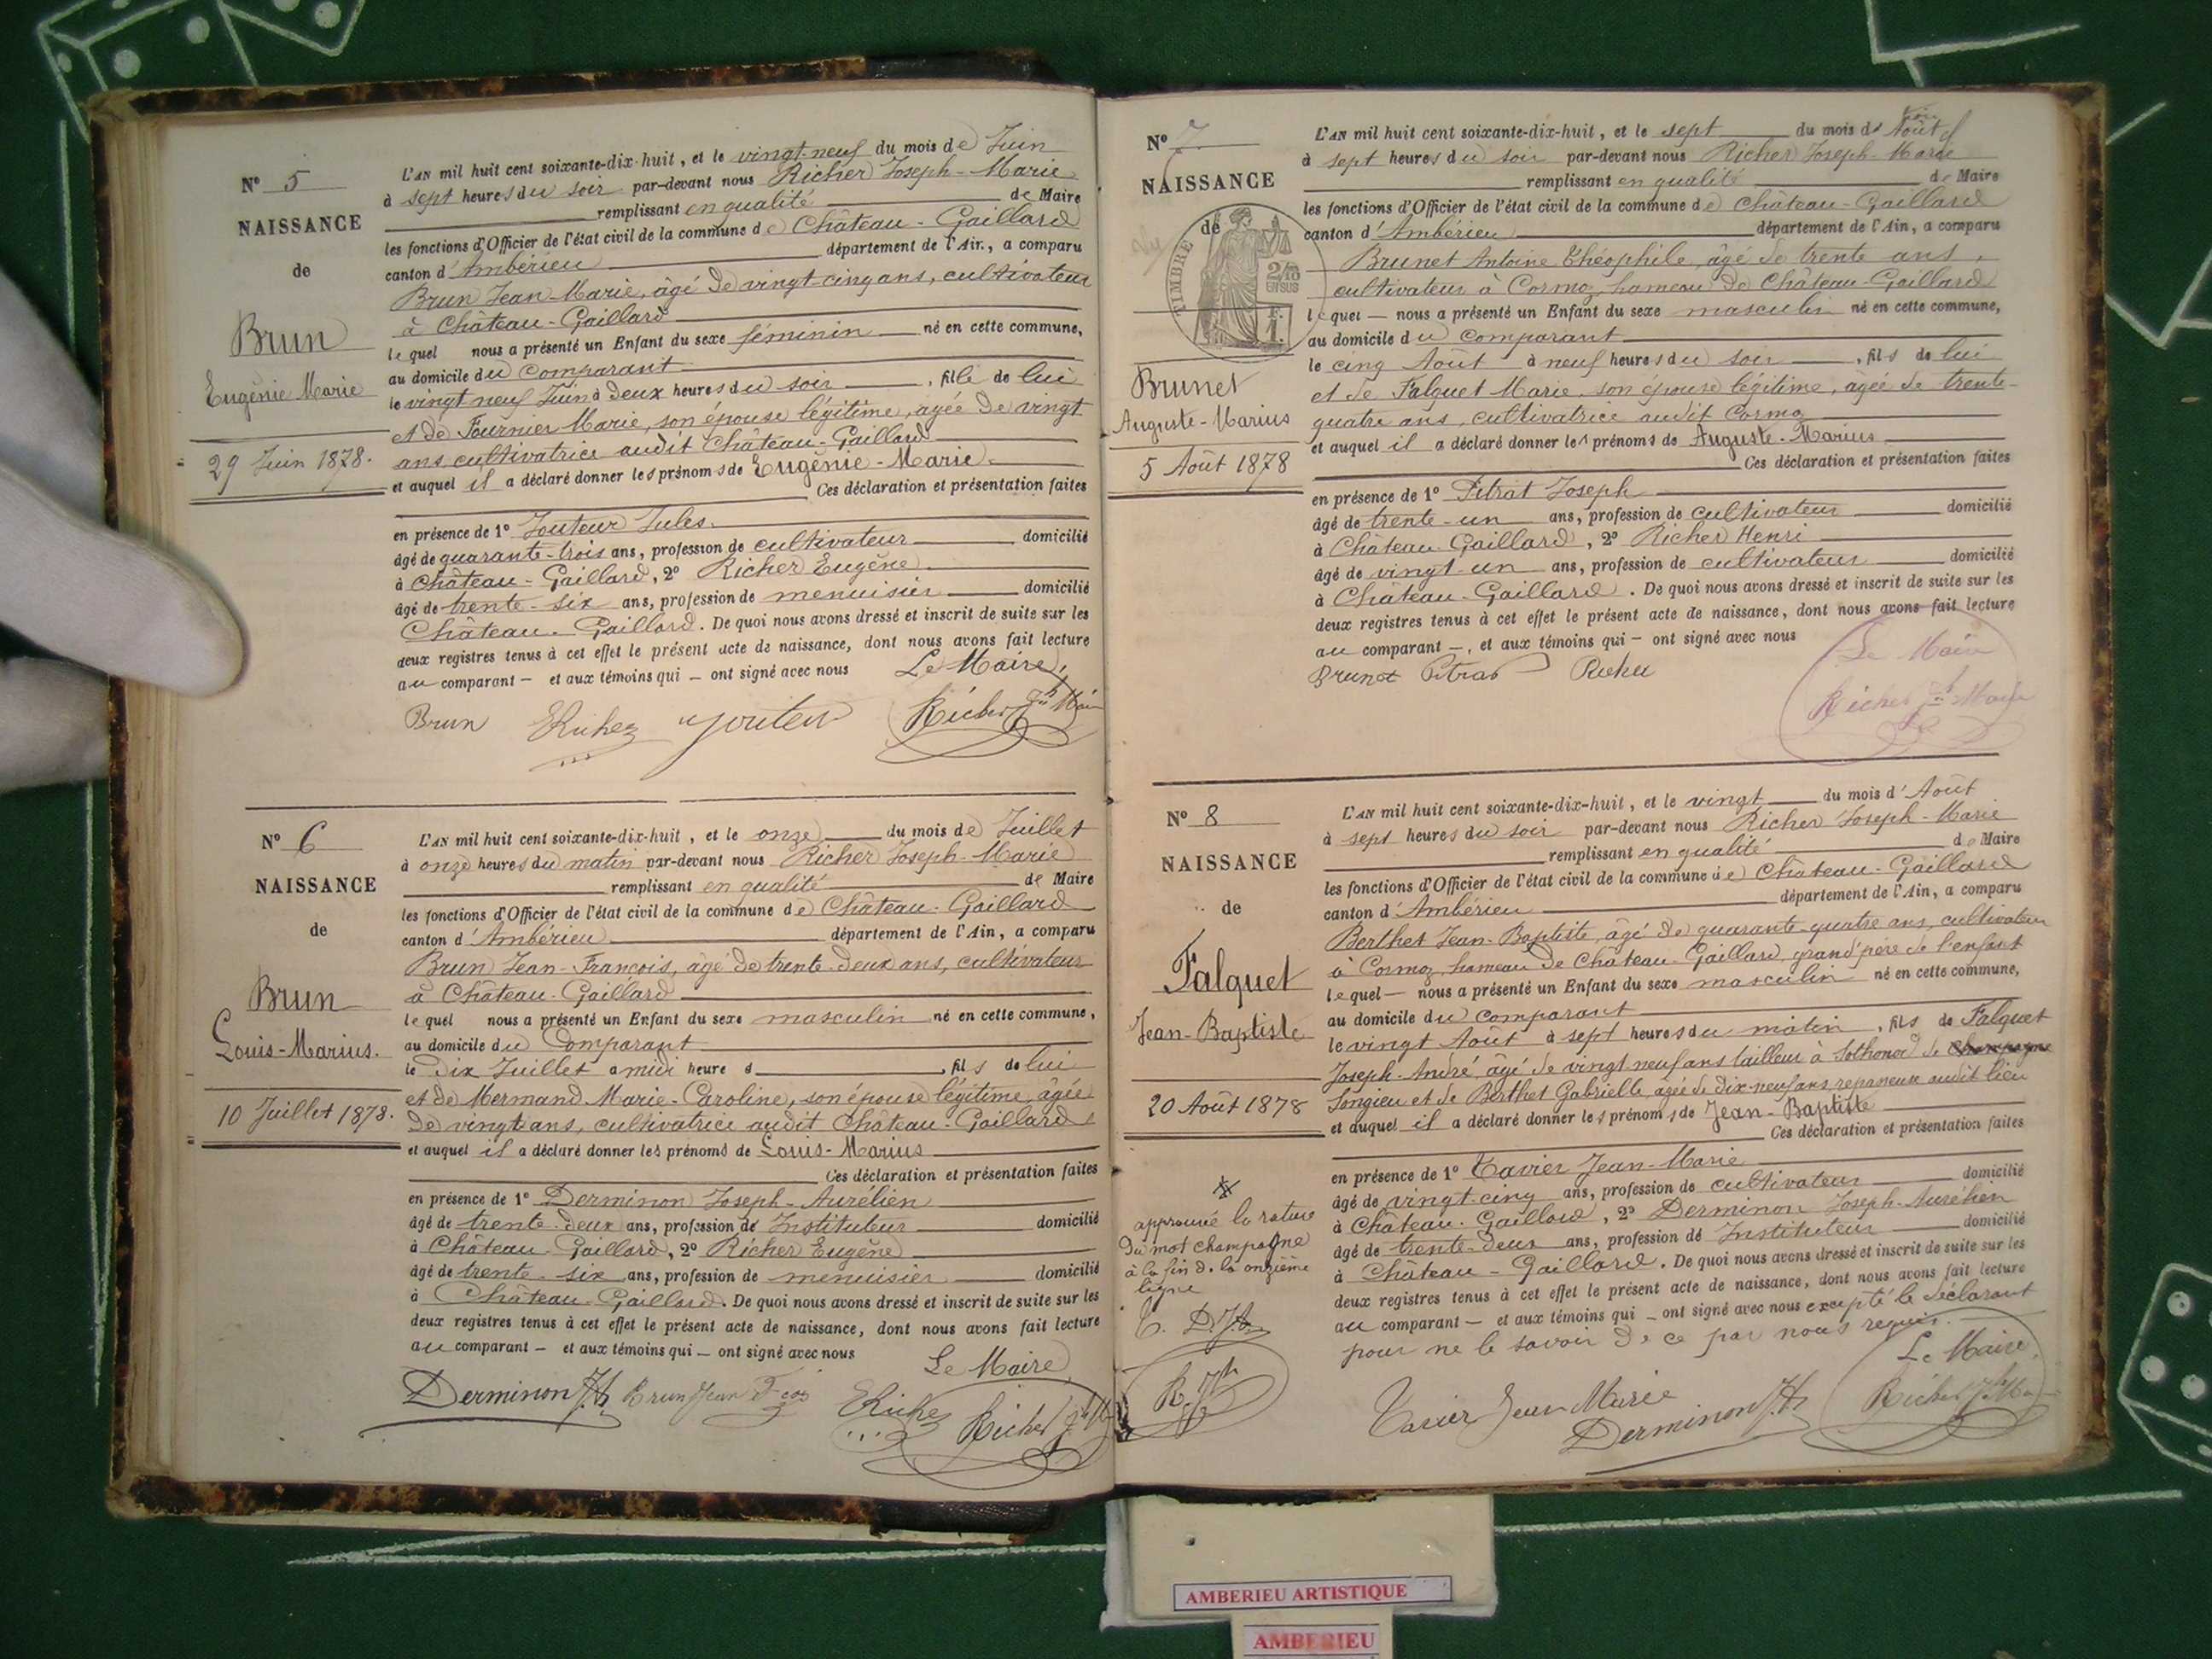 N° 5
NAISSANCE
de
Brun
Eugénie Marie
29 Juin 1878.
L'AN mil huit cent soixante-dix-huit, et le vingt-neuf du mois de Juin
à sept heures du soir par-devant nous Richer Joseph-Marie
remplissant en qualité de Maire
les fonctions d'Officier de l'état civil de la commune de Château-Gaillard
canton d'Ambérieu département de l'Ain, a comparu
Brun Jean-Marie, âgé de vingt-cinq ans, cultivateur
à Château-Gaillard
lequel nous a présenté un Enfant du sexe féminin né en cette commune,
au domicile du comparant
le vingt neuf Juin à deux heures du soir, fille de lui
et de Fournier Marie, son épouse légitime, âgée de vingt
ans, cultivatrice audit Château-Gaillard
et auquel il a déclaré donner les prénoms de Eugénie-Marie.
Ces déclaration et présentation faites
en présence de 1° Jouteur Jules.
âgé de quarante-trois ans, profession de cultivateur domicilié
à Château-Gaillard, 2° Richer Eugène.
âgé de trente-six ans, profession de menuisier domicilié
Château-Gaillard. De quoi nous avons dressé et inscrit de suite sur les
deux registres tenus à cet effet le présent acte de naissance, dont nous avons fait lecture
au comparant – et aux témoins qui – ont signé avec nous Le Maire,
Brun ERicher Jouteur Richer Jph Mie
N° 6
NAISSANCE
de
Brun
Louis-Marius.
10 Juillet 1878.
L'AN mil huit cent soixante-dix-huit, et le onze du mois de Juillet
à onze heures du matin par-devant nous Richer Joseph-Marie
remplissant en qualité de Maire
les fonctions d'Officier de l'état civil de la commune de Château-Gaillard
canton d'Ambérieu département de l'Ain, a comparu
Brun Jean-François, âgé de trente-deux ans, cultivateur
à Château-Gaillard
lequel nous a présenté un Enfant du sexe masculin né en cette commune,
au domicile du Comparant
le dix Juillet à midi heure d, fils de lui
et de Mermand Marie-Caroline, son épouse légitime, âgée
de vingt ans, cultivatrice audit Château-Gaillard
et auquel il a déclaré donner les prénoms de Louis-Marius
Ces déclaration et présentation faites
en présence de 1° Derminon Joseph-Aurélien
âgé de trente-deux ans, profession de Instituteur domicilié
à Château-Gaillard, 2° Richer Eugène
âgé de trente-six ans, profession de menuisier domicilié
à Château-Gaillard. De quoi nous avons dressé et inscrit de suite sur les
deux registres tenus à cet effet le présent acte de naissance, dont nous avons fait lecture
au comparant – et aux témoins qui – ont signé avec nous Le Maire
Derminon J.A. Brun Jean Fçois ERicher Richer Jph
N° 7
NAISSANCE
de
TIMBRE
2/10 EN SUS
F. 1.
Brunet
Auguste-Marius
5 Août 1878
L'AN mil huit cent soixante-dix-huit, et le sept du mois d'Août
à sept heures du soir par-devant nous Richer Joseph-Marie
remplissant en qualité de Maire
les fonctions d'Officier de l'état civil de la commune de Château-Gaillard
canton d'Ambérieu département de l'Ain, a comparu
Brunet Antoine Théophile, âgé de trente ans,
cultivateur à Cormoz, hameau de Château-Gaillard
lequel – nous a présenté un Enfant du sexe masculin né en cette commune,
au domicile du comparant
le cinq Août à neuf heures du soir, fils de lui
et de Falquet Marie, son épouse légitime, âgée de trente-
quatre ans, cultivatrice audit Cormoz
et auquel il a déclaré donner les prénoms de Auguste-Marius
Ces déclaration et présentation faites
en présence de 1° Pitrat Joseph
âgé de trente-un ans, profession de cultivateur domicilié
à Château-Gaillard, 2° Richer Henri
âgé de vingt-un ans, profession de cultivateur domicilié
à Château-Gaillard. De quoi nous avons dressé et inscrit de suite sur les
deux registres tenus à cet effet le présent acte de naissance, dont nous avons fait lecture
au comparant –, et aux témoins qui – ont signé avec nous
Le Maire
Brunet Pitrat Richer
Richer Jph Marie
N° 8
NAISSANCE
de
Falquet
Jean-Baptiste
20 Août 1878
approuvé la rature
du mot champagne
à la fin de la onzième
ligne
T. D.J.A.
R. Jph
L'AN mil huit cent soixante-dix-huit, et le vingt du mois d'Août
à sept heures du soir par-devant nous Richer Joseph-Marie
remplissant en qualité de Maire
les fonctions d'Officier de l'état civil de la commune de Château-Gaillard
canton d'Ambérieu département de l'Ain, a comparu
Berthet Jean-Baptiste, âgé de quarante-quatre ans, cultivateur
à Cormoz, hameau de Château-Gaillard, grand'père de l'enfant
lequel – nous a présenté un Enfant du sexe masculin né en cette commune,
au domicile du comparant
le vingt Août à sept heures du matin, fils de Falquet
Joseph-André, âgé de vingt neuf ans tailleur à Sothonod de Champagne
Songieu et de Berthet Gabrielle, âgée de dix-neuf ans, repasseuse audit lieu
et auquel il a déclaré donner les prénoms de Jean-Baptiste
Ces déclaration et présentation faites
en présence de 1° Tavier Jean-Marie
âgé de vingt-cinq ans, profession de cultivateur domicilié
à Château-Gaillard, 2° Derminon Joseph-Aurélien
âgé de trente-deux ans, profession de Instituteur domicilié
à Château-Gaillard. De quoi nous avons dressé et inscrit de suite sur les
deux registres tenus à cet effet le présent acte de naissance, dont nous avons fait lecture
au comparant – et aux témoins qui – ont signé avec nous excepté le déclarant
pour ne le savoir de ce par nous requis.
Le Maire
Tavier Jean Marie Derminon J.A. Richer Jph Mie
AMBERIEU ARTISTIQUE
AMBERIEU